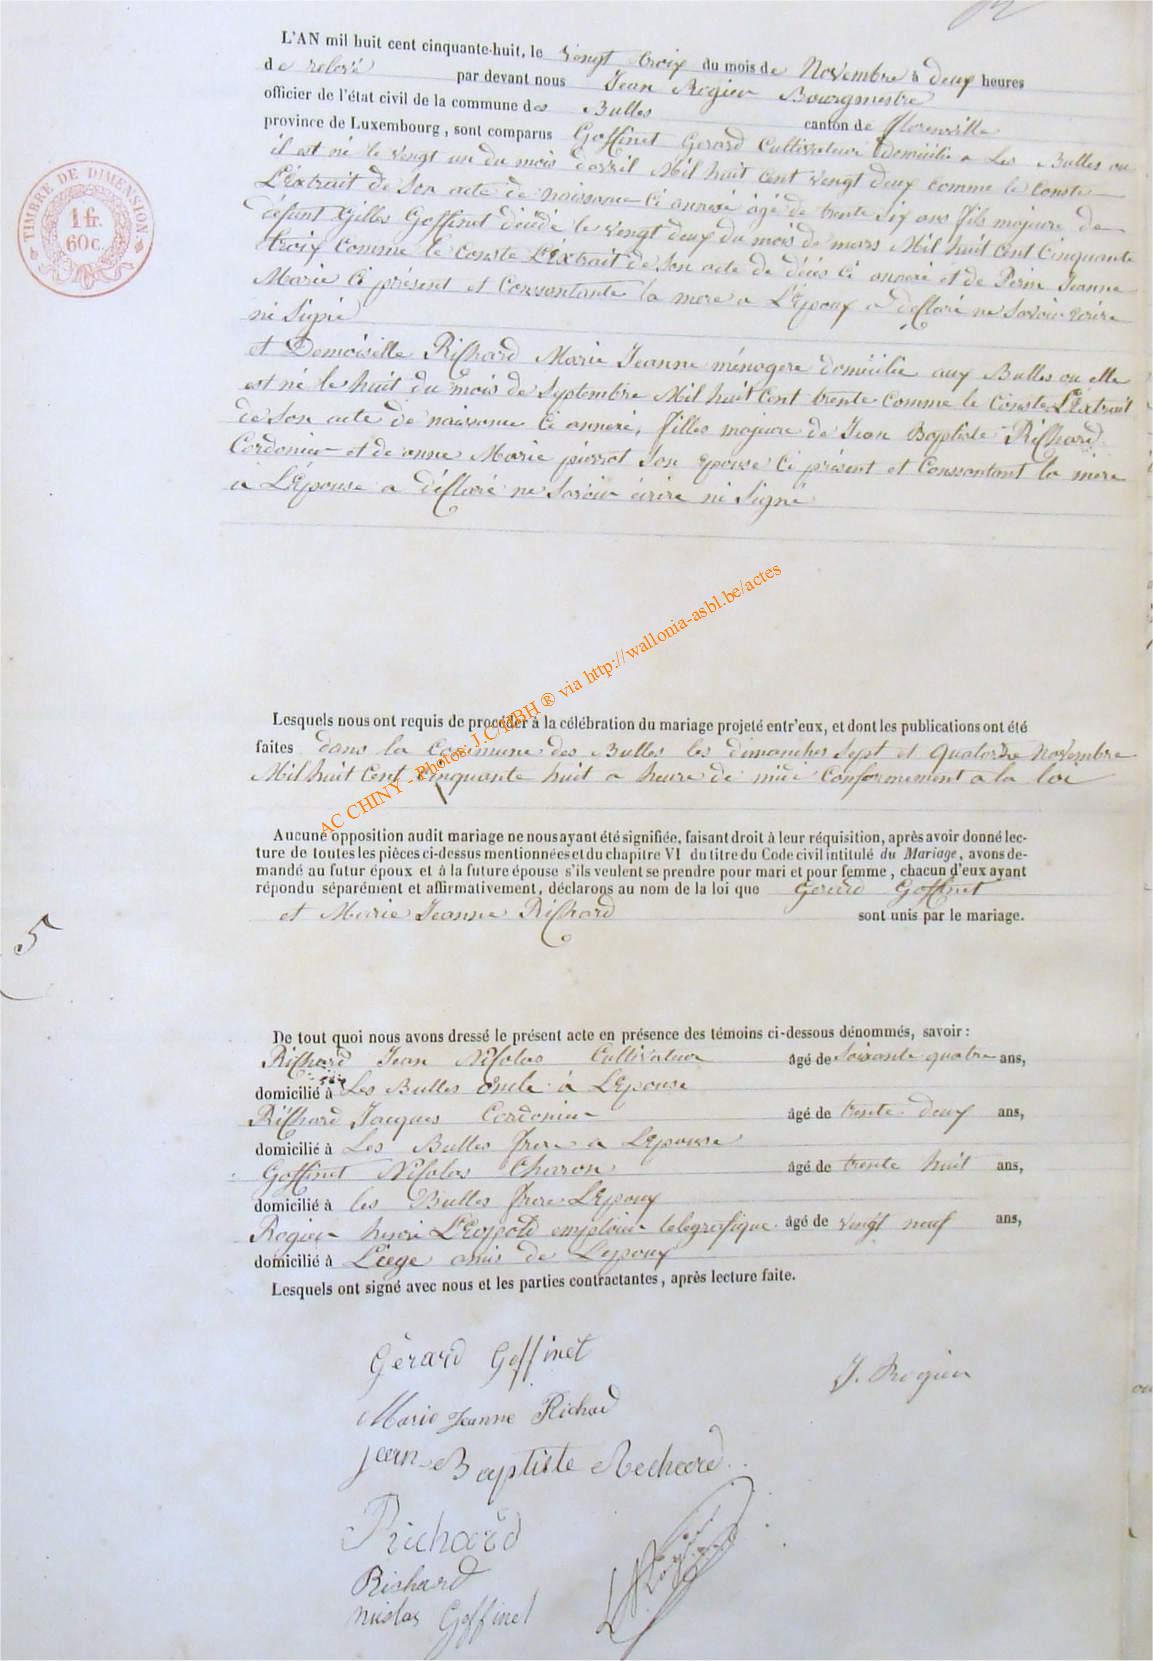 L'AN mil huit cent cinquante-huit, le vingt trois du mois de Novembre à deux heures
de relevé par devant nous Jean Rogier Bourgmestre
officier de l'état civil de la commune des Bulles canton de florenville
province de Luxembourg, sont comparus Goffinet Gerard Cultivateur domicilié a Les Bulles ou
il est né le vingt un du mois d'avril Mil huit cent vengt deux comme le conste
L'Extrait de Son acte de naissance Ci annexé âgé de trente six ans fils majeure de
défunt Gilles Goffinet décédé le vingt deux du mois de mars Mil huit Cent Cinquante
troix comme le conste L'Extrait de Son acte de décès Ci annexé et de Perin Jeanne
Marie Ci présent et Conssantante la mere a L'Epoux a declaré ne Savoir écrire
ni Signé
et Demoiselle Richard Marie Jeanne ménagere domicilie aux Bulles ou elle
est né le huit du mois de Septembre Mil huit Cent trente comme le conste L'Extrait
de Son acte de naissance Ci annexé, filles majeure de Jean Baptiste Richard
Cordonier et de anne Marie pierrot Son epouse Ci présent et Conssantant la mère
a L'Épouse a déclaré ne Savoir écrire ni Signé
Lesquels nous ont requis de procéder à la célébration du mariage projeté entr'eux, et dont les publications ont été
faites dans la Commune des Bulles les dimanches Sept et quatorhe Novembre
Mil huit Cent Cinquante huit a heure de midi Conformement a la loi
Aucune opposition audit mariage ne nous ayant été signifiée, faisant droit à leur réquisition, après avoir donné lec-
ture de toutes les pièces ci-dessus mentionnées et du chapitre VI du titre du Code civil intitulé du Mariage, avons de-
mandé au futur époux et à la future épouse s'ils veulent se prendre pour mari et pour femme, chacun d'eux ayant
répondu séparément et affirmativement, déclarons au nom de la loi que Gerard Goffinet
et Marie Jeanne Richard sont unis par le mariage.
5
De tout quoi nous avons dressé le présent acte en présence des témoins ci-dessous dénommés, savoir :
Richard Jean Nicolas Cultivateur âgé de Soixante quatre ans,
domicilié à Les Bulles Oncle à L'Epouse
Richard Jacques Cordonier âgé de trente-deux ans,
domicilié à Les Bulles frere a L'Epouse
Goffinet Nicolas Charon âgé de trente huit ans,
domicilié à les Bulles frere L'Epoux
Rogier henri L'Eopold emploier telegrafique âgé de vingt neuf ans,
domicilié à Liege amis de Lepoux
Lesquels ont signé avec nous et les parties contractantes, après lecture faite.
Gérard Goffinet
J. Rogier
Marie Jeanne Richard
Jean Baptiste Rechard
Richard
Richard
Nicolas Goffinet
TIMBRE DE DIMENSION.
1 fr.
60 c.
AC CHINY - Photos: J.C. HBH ® via http://wallonia-asbl.be/actes